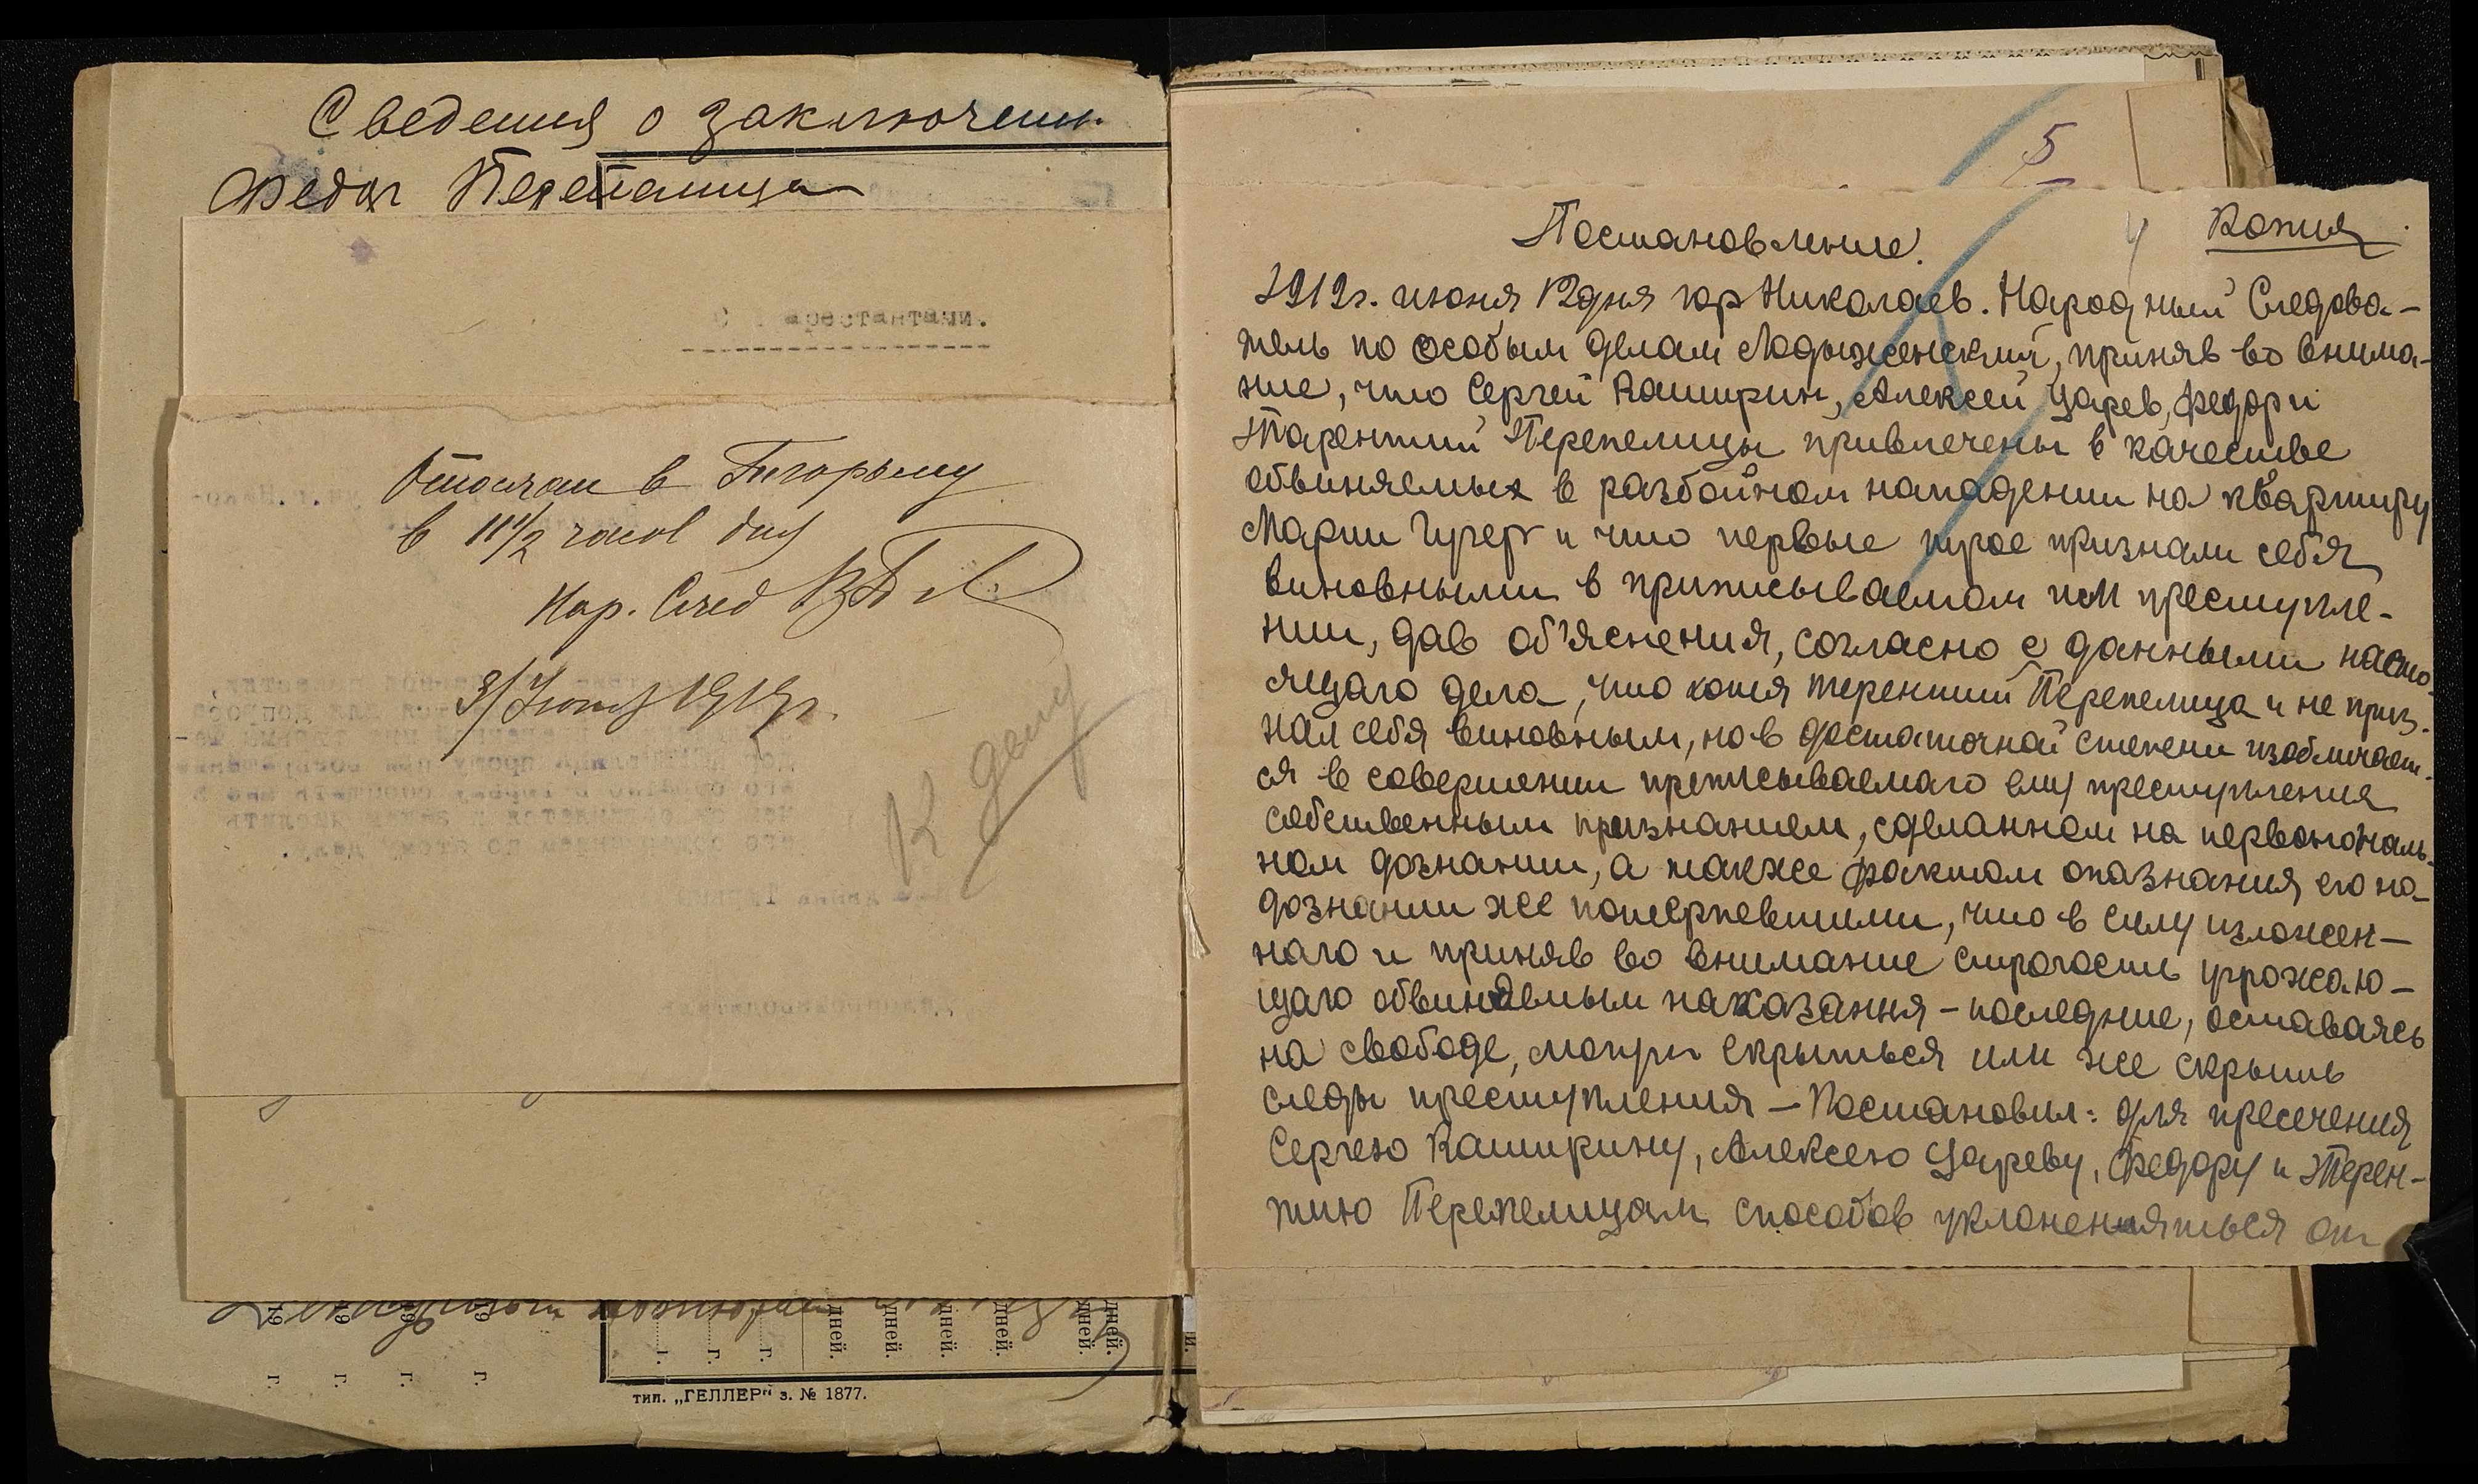 Сведения о заключени
Федог Перепелица
арестантами.
Отослан в
в 11 1/2 часов дня
Нар. След
3/Июня 1919г.
К делу
дней. дней. дней. дней. дней.
19 г. 19 г. 19 г. 19 г.
тип. „ГЕЛЛЕР" з. № 1877.
5
4 Копия
Постановление.
1919г. июня 12 дня гор Николаев. Народный Следова-
тель по особым делам Лодыженский, приняв во внима-
ние, что Сергей Каширин, Алексей Царев, Федор и
Терентий Перепелицы привлечены в качестве
обвиняемых в разбойном нападении на квартиру
Марии и что первые трое признали себя
виновными в приписываемом им преступле-
нии, дав об'яснения, согласно с данными насто-
ящаго дела, что хотя Терентий Перепелица и не приз-
нал себя виновным, но в достаточной степени изобличает-
ся в совершении приписываемаго ему преступления
собственным признанием, сделанном на первоначаль-
ном дознании, а также фактом опознания его на-
дознании же потерпевшими, что в силу изложен-
наго и приняв во внимание строгость угрожаю-
щаго обвиняемым наказания - последние, оставаясь
на свободе, могут скрыться или же скрыть
следы преступления - Постановил: для пресечения
Сергею Каширину, Алексею Цареву, Федору и Терен-
тию Перепелицам способов уклоненияться от